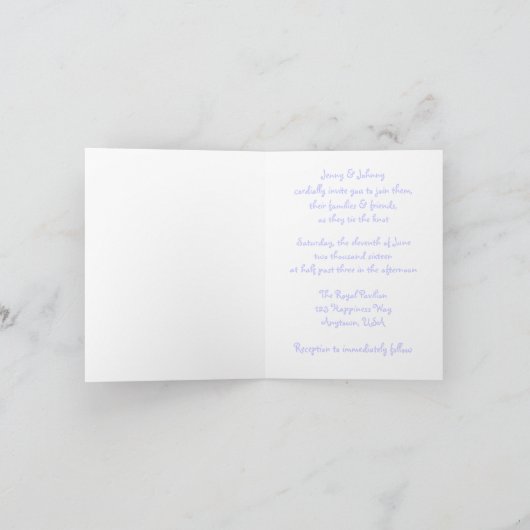 Jenny & Johnny
cordially invite you to join them,
their families & friends,
as they tie the knot
Saturday, the eleventh of June
two thousand sixteen
at half past three in the afternoon
The Royal Pavilion
123 Happiness Way
Anytown, USA
Reception to immediately follow